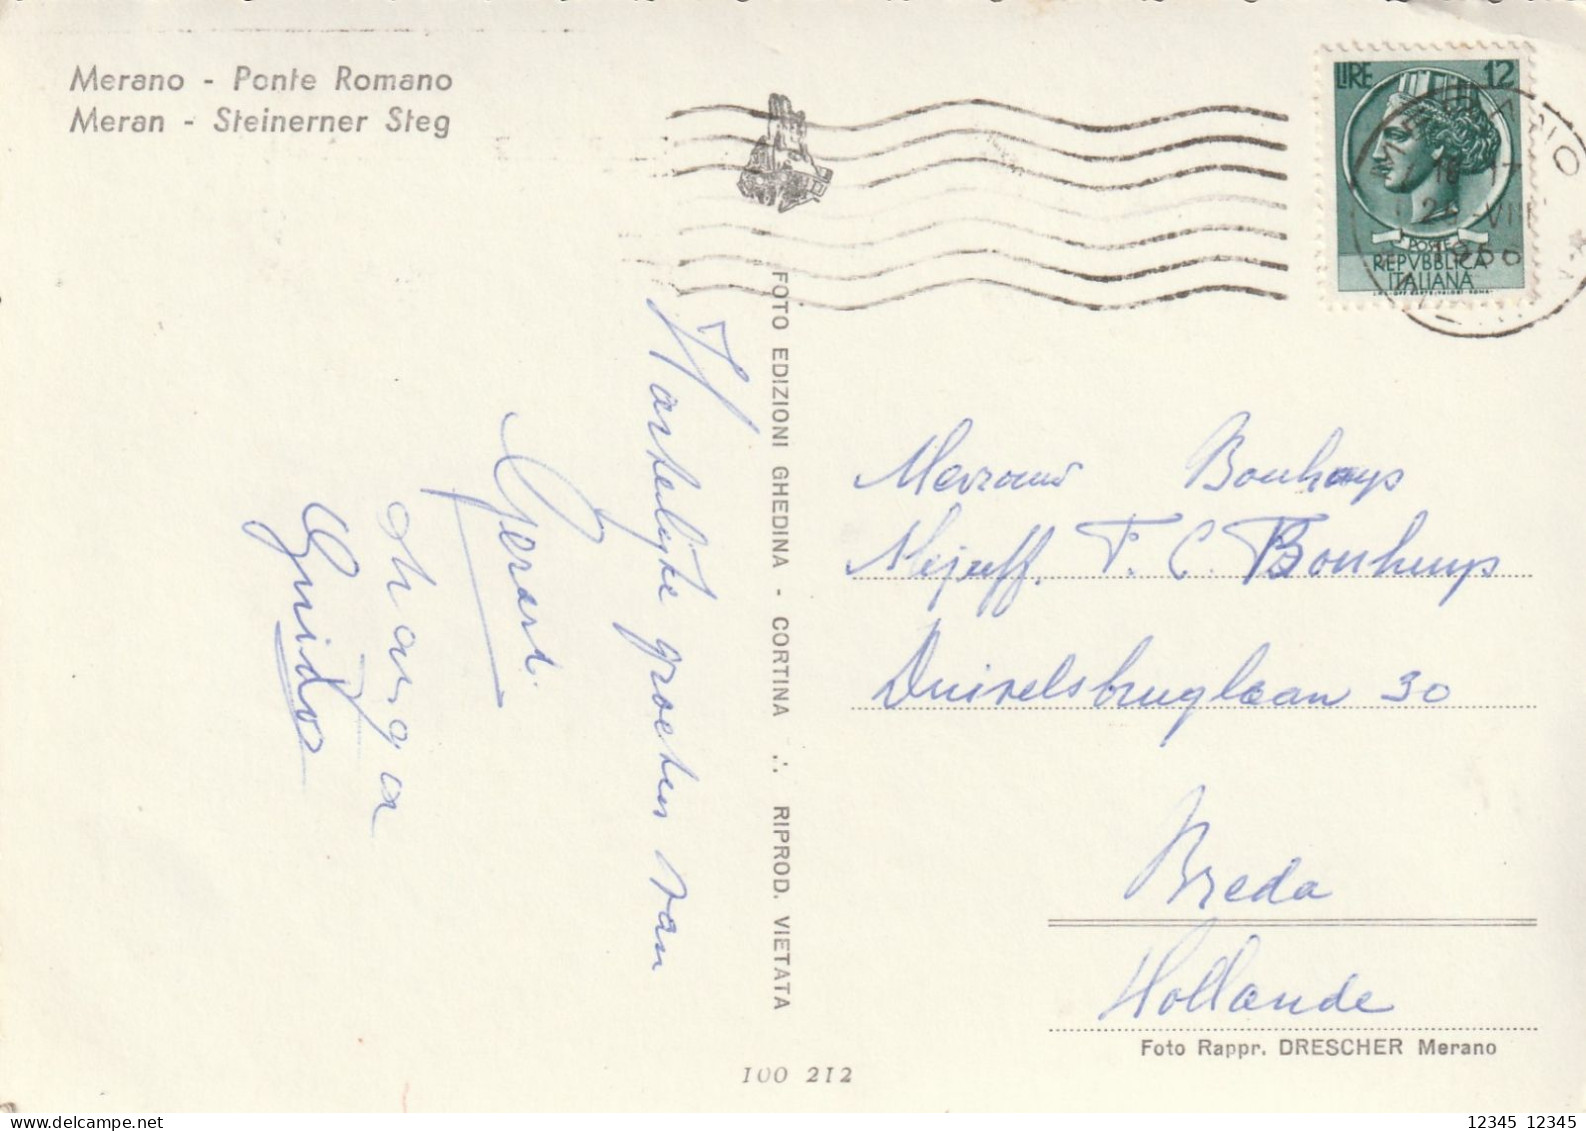 Merano - Ponte Romano
Meran - Steinerner Steg
LIRE 12
POSTE
REPVBBLICA
ITALIANA
1956
FOTO EDIZIONI GHEDINA - CORTINA ∴ RIPROD. VIETATA
Hartelijke groeten van
Gerard.
Marga
Guido
Mevrouw Bonhups
Mejuff. F. C. Bonhups
Duivelsbruglaan 30
Breda
Hollande
Foto Rappr. DRESCHER Merano
100 212
12345 12345